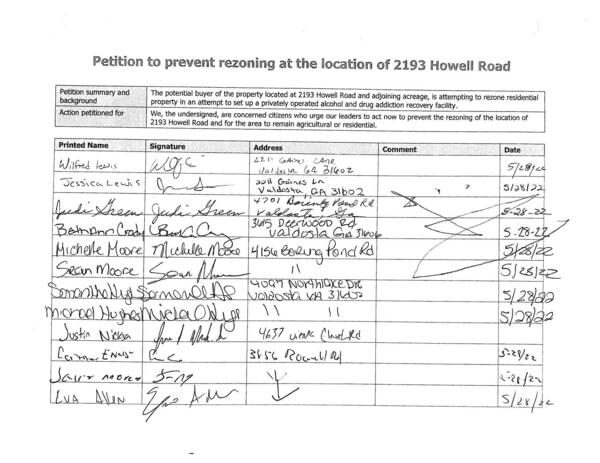 Petition to prevent rezoning at the location of 2193 Howell Road
Petition summary and background
The potential buyer of the property located at 2193 Howell Road and adjoining acreage, is attempting to rezone residential
property in an attempt to set up a privately operated alcohol and drug addiction recovery facility.
Action petitioned for
We, the undersigned, are concerned citizens who urge our leaders to act now to prevent the rezoning of the location of
2193 Howell Road and for the area to remain agricultural or residential.
Printed Name Signature Address Comment Date
Wilfred Lewis 2211 Gaines Lane
Valdosta GA 31602 5/28/22
Jessica Lewis 2211 Gaines Ln
Valdosta, GA 31602 5/28/22
Judie Green Judie Green 4701 Pond Rd
Valdosta, Ga 5-28-22
Bethann 3615 Deerwood Rd
Valdosta GA 31606 5-28-22
Michelle Moore Michelle Moore 4156 Boring Pond Rd 5/28/22
Sean Moore Sean 11 5/28/22
4097 Northlake Dr
Valdosta GA 31602 5/28/22
Michael Hughes 11 11 5/28/22
Justin 4637 Rd
3656 Rd 5-28/22
Moore 5-28/22
Eva Allen 5/28/22